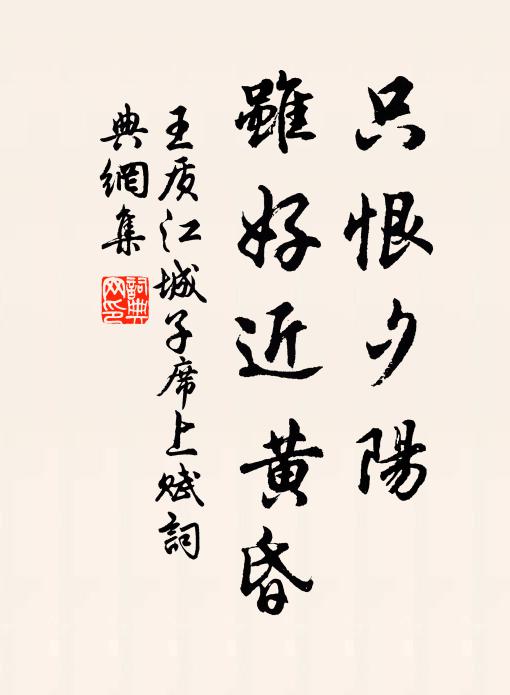 只恨夕陽
雖好近黄昏
王质江城子席上赋詞
典網集
詞典
网印